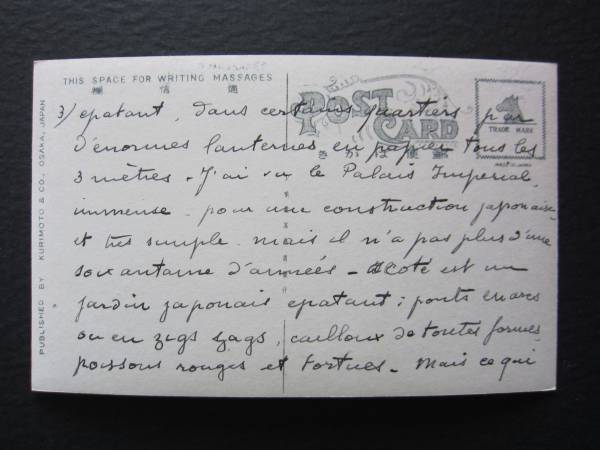 THIS SPACE FOR WRITING MASSAGES
欄 信 通
POST CARD
きがは便郵
TRADE MARK
PUBLISHED BY KURIMOTO & CO., OSAKA, JAPAN
3/ epatant, dans certains quartiers par
d'énormes lanternes en papier tous les
3 mètres - J'ai vu le Palais Imperial,
immense pour une construction japonaise
et très simple mais il n'a pas plus d'une
soixantaine d'années - A coté est un
jardin japonais epatant ; ponts en arcs
ou en zigs zags, cailloux de toutes formes
poissons rouges et tortues - Mais ce qui